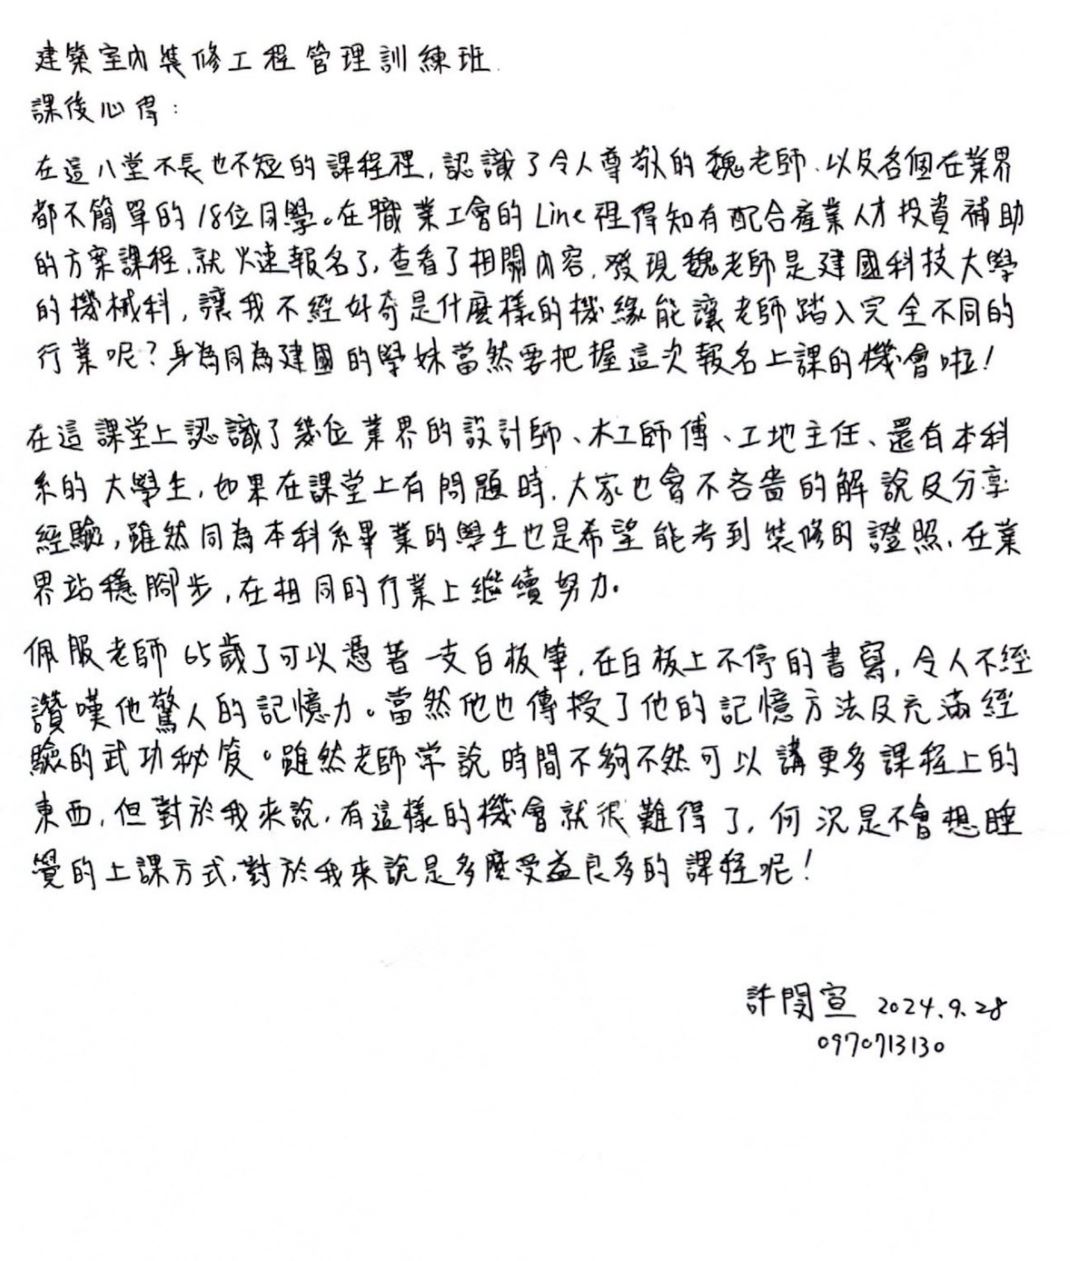 建築室內裝修工程管理訓練班
課後心得：
在這八堂不長也不短的課程裡，認識了令人尊敬的魏老師、以及各個在業界
都不簡單的18位同學。在職業工會的Line裡得知有配合產業人才投資補助
的方案課程，就火速報名了，查看了相關內容，發現魏老師是建國科技大學
的機械科，讓我不經好奇是什麼樣的機緣能讓老師踏入完全不同的
行業呢？身為同為建國的學妹當然要把握這次報名上課的機會啦！
在這課堂上認識了幾位業界的設計師、木工師傅、工地主任、還有本科
系的大學生，如果在課堂上有問題時，大家也會不吝嗇的解說及分享
經驗，雖然同為本科系畢業的學生也是希望能考到裝修的證照，在業
界站穩腳步，在相同的行業上繼續努力。
佩服老師65歲了可以憑著一支白板筆，在白板上不停的書寫，令人不經
讚嘆他驚人的記憶力。當然他也傳授了他的記憶方法及充滿經
驗的武功秘笈。雖然老師常說時間不夠不然可以講更多課程上的
東西，但對於我來說，有這樣的機會就很難得了，何況是不會想睡
覺的上課方式，對於我來說是多麼受益良多的課程呢！
許閔宣 2024.9.28
0970713130